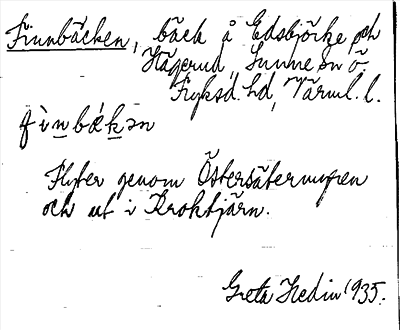 Finnbäcken, bäck å Edsbjörke och
Hägerud, Sunne sn ö.
Fryksd. hd, Värml. l.
fìnbǽkən
Flyter genom Östersätermyren
och ut i Kroktjärn.
Greta Hedin 1935.